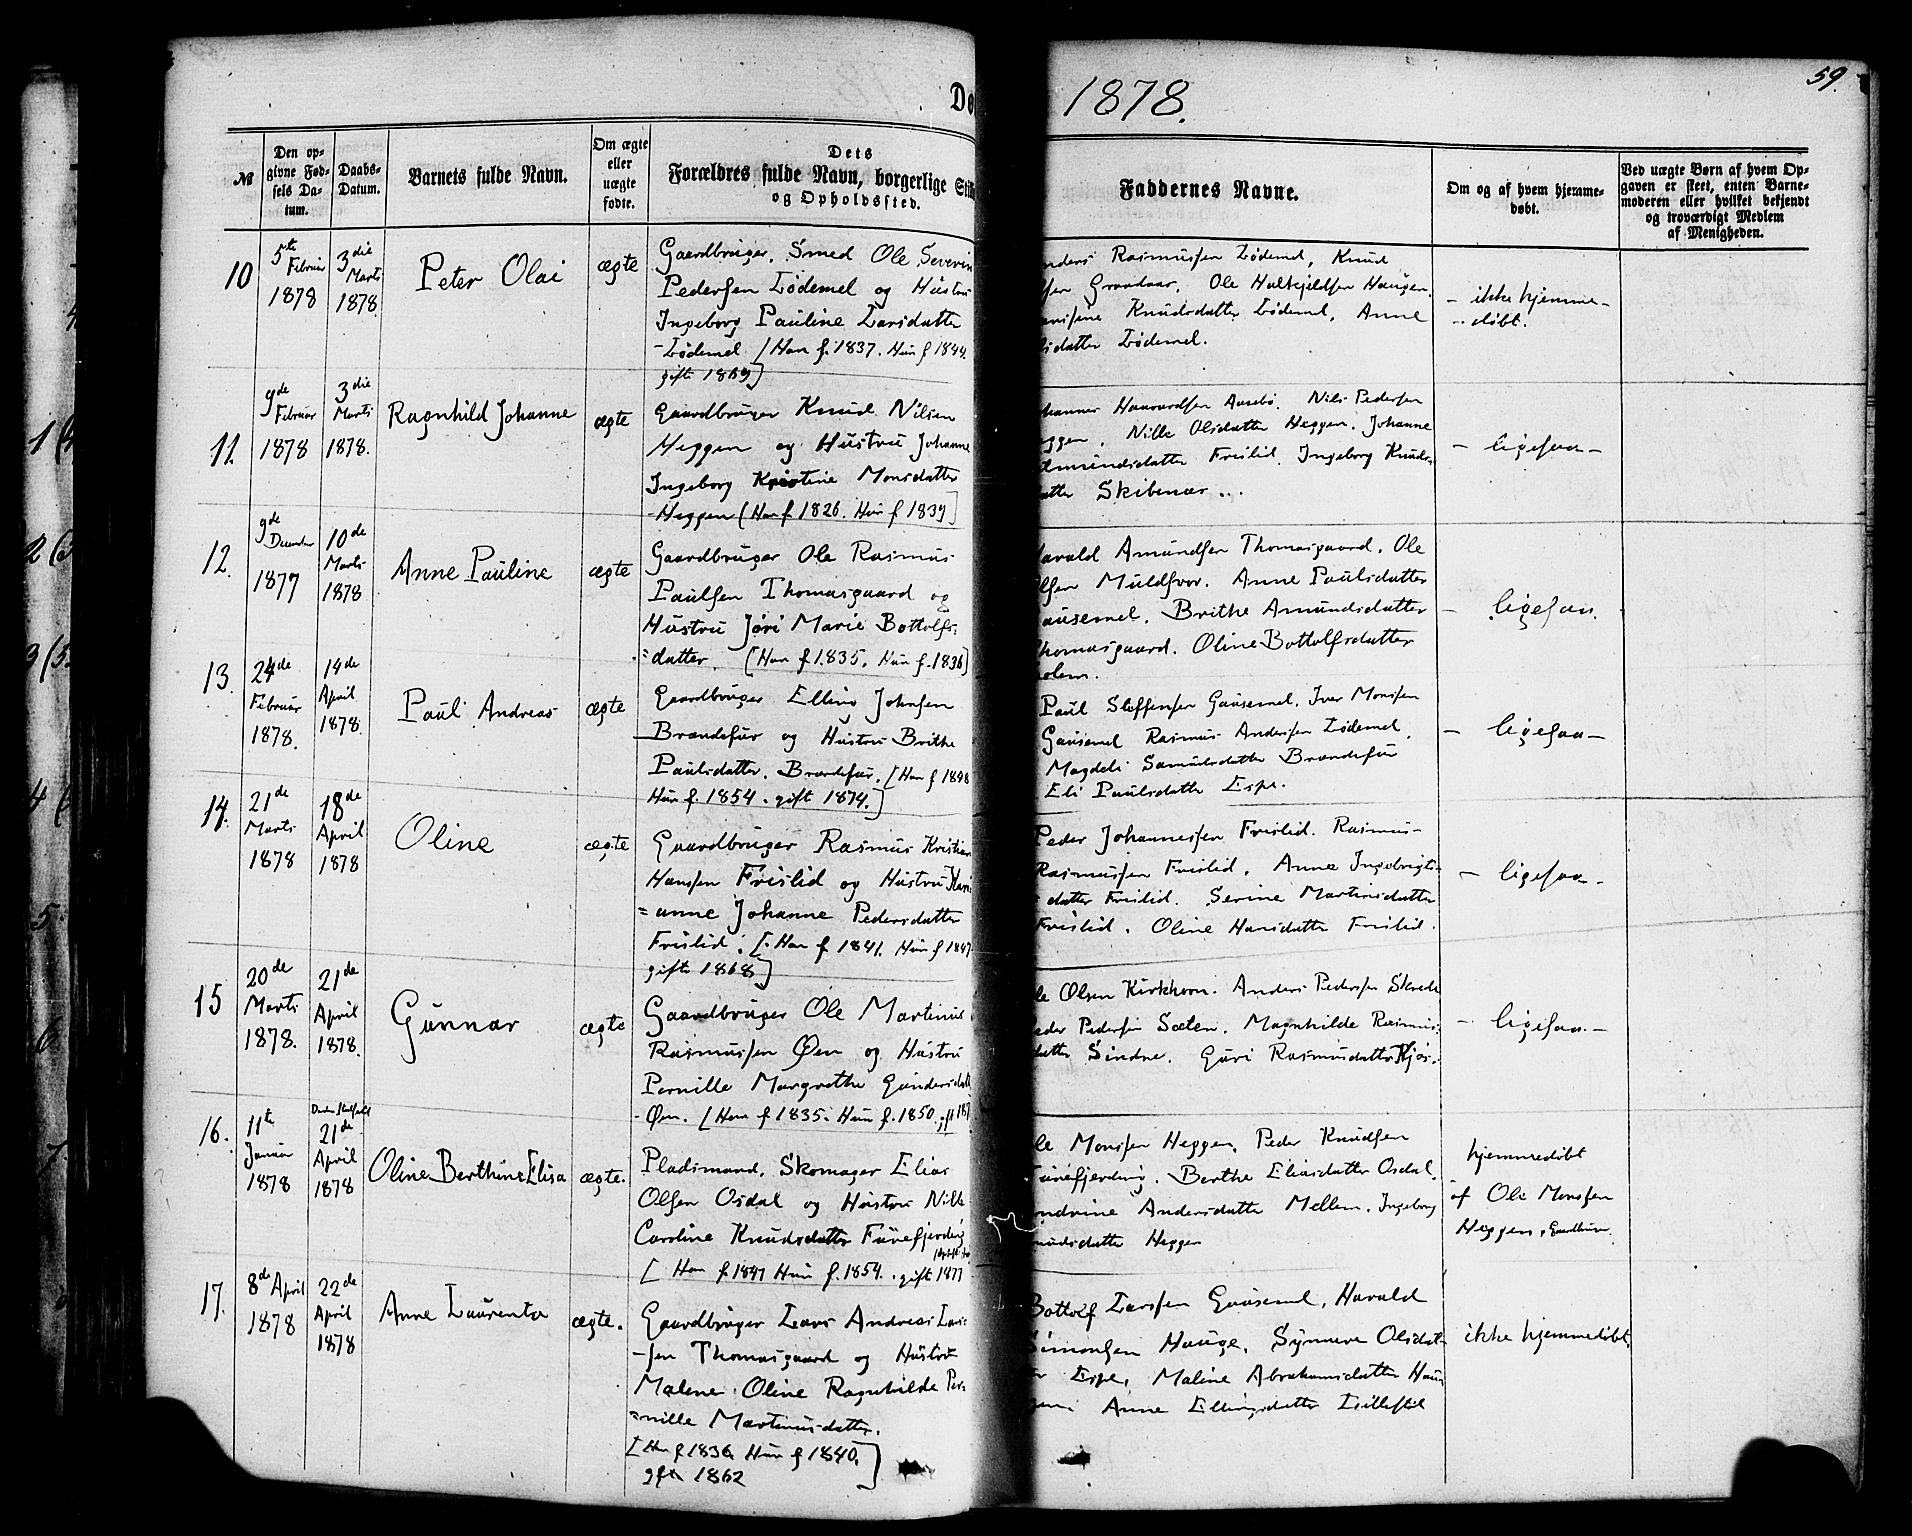 59.
Dø
1878.
№
Den op-
givne Fød-
sels Da-
tum.
Daabs-
Datum.
Barnets fulde Navn.
Om ægte
eller
uægte
fødte.
Dets
Forældres fulde Navn, borgerlige Stil
og Opholdssted.
Faddernes Navne.
Om og af hvem hjemme-
døbt.
Ved uægte Børn af hvem Op-
gaven er skeet, enten Barne-
moderen eller hvilket bekjendt
og troværdigt Medlem
af Menigheden.
10
5te
Februar
1878
3die
Marts
1878.
Peter Olai
ægte
Gaardbruger, Smed Ole Severin
Pedersen Lødemel og Hustru
Ingeborg Pauline Larsdatter
-Lødemel [Han f. 1837. Hun f 1844.
gift 1869]
nders Rasmussen Lødemel, Knud
sen Grandaar. Ole Halkjeldsen Haugen.
Knudsdatter Lødemel, Anne
datter Lødemel.
- ikke hjemme-
-døbt.
11.
9de
Februar
1878
3die
Marts
1878.
Ragnhild Johanne
ægte
Gaardbruger Knud Nilsen
Heggen og Hustru Johanne
Ingeborg Kristine Monsdatter
-Heggen [Han f 1826. Hun f 1839]
hannes Haavardsen Aasebø. Nils Pedersen
eggen, Nille Olsdatter Heggen. Johanne
Amundsdatter Frislid. Ingeborg Knuds-
datter Skibenær..
- ligesaa -
12.
9de
December
1877
10de
Marts
1878
Anne Pauline
ægte
Gaardbruger Ole Rasmus
Paulsen Thomasgaard og
Hustru Jøri Marie Bottolfs-
=datter. [Han f 1835. Hun f. 1836]
Harald Amundsen Thomasgaard. Ole
lsen Muldsvor. Anne Paulsdatter
ausemel. Brithe Amundsdatter
homasgaard. Oline Bottolfsdatter
olem.
- ligesaa.
13.
24de
Februar
1878.
14de
April
1878.
Paul Andreas
ægte
Gaardbruger Elling Johnsen
Brændefur og Hustru Brithe
Paulsdatter. Brændefur. [Han f 1848
Hun f. 1854. gift 1874.]
Paul Steffensen Gausemel. Iver Monsen
Gausemel Rasmus Andersen Lødemel.
Magdeli Samuelsdatter Brændefur
Eli Paulsdatter Espe.
- ligesaa -
14.
21de
Marts
1878
18de
April
1878
Oline
ægte
Gaardbruger Rasmus Kristian
Hansen Frislid og Hustru Mari
=anne Johanne Pedersdatter
Frislid. [Han f 1841. Hun f 1847
gift 1868]
Peder Johannessen Frislid. Rasmus
Rasmussen Frislid. Anne Ingebrigts-
datter Frislid. Serine Martinsdatter
Frislid. Oline Hansdatter Frislid.
- ligesaa -
15
20de
Marts
1878.
21de
April
1878.
Gunnar
ægte
Gaardbruger Ole Martinus
Rasmussen Øen og Hustru
Pernille Margrethe Gundersdatt
-Øen. [Han f 1835. Hun f. 1850. gift 187
le Olsen Kirkhorn. Anders Pedersen Skrede
eder Pedersen Sæten. Magnhilde Rasmus-
datter Sindre. Guri Rasmusdatter Kjøs.
- ligesaa. -
16.
11te
Januar
1878
21de
April
1878
Oline Berthine Elisa
ægte.
Pladsmand, Skomager Elias
Olsen Osdal og Hustru Nille
Caroline Knudsdatter Furefjerding
[Han f. 1847 Hun f. 1854. gift 1877
le Monsen Heggen, Peder Knudsen
Furefjerding. Berthe Eliasdatter Osdal.
Andersdatter Mellem. Ingeborg
nudsdatter Heggen
hjemmedøbt
af Ole Monsen
Heggen, Gaardbruger
17.
8de April
1878
22de
April
1878
Anne Laurentse
ægte.
Gaardbruger Lars Andreas Lars-
-sen Thomasgaard og Hustru
Malene Oline Ragnhilde Per-
=nille Martinusdatter.
[Han f 1836 Hun f 1840.
gift 1862]
Bottolf Larssen Gausemel, Harald
Simonsen Hauge, Synneve Olsdat-
Espe, Maline Abrahamsdatter Hau
gen. Anne Ellingsdatter Lillestøl
ikke hjemmedøbt.